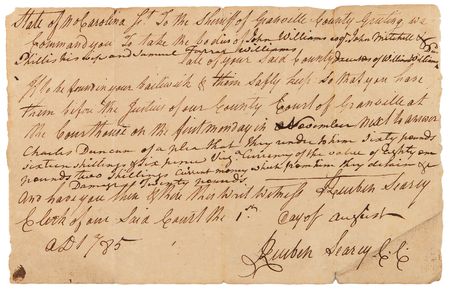 State of No Carolina Sct. To the Sheriff of Granville County Greeting we
Command you to take the bodies of John Williams esqr John Mitchell &
Phillis his wife and Samuel Farrar Williams, Executors of William Williams
late of your Said County
If to be found in your bailiwick & them Safly keep So that you have
them before the Justices of our County Court of Granville at
the Courthouse on the first monday in November Next to answer
Charles Duncan of a plea that they render to him Sixty pounds
Sixteen Shillings & Six pence Virg. Currency of the value of Eighty one
pounds two Shillings Current money which from him they detain &c
Damages Twenty pounds
And have you then & there this writ Witness Reuben Searcy
Clerk of our Said Court the 1st day of August
AD 1785
Reuben Searcy C.C.